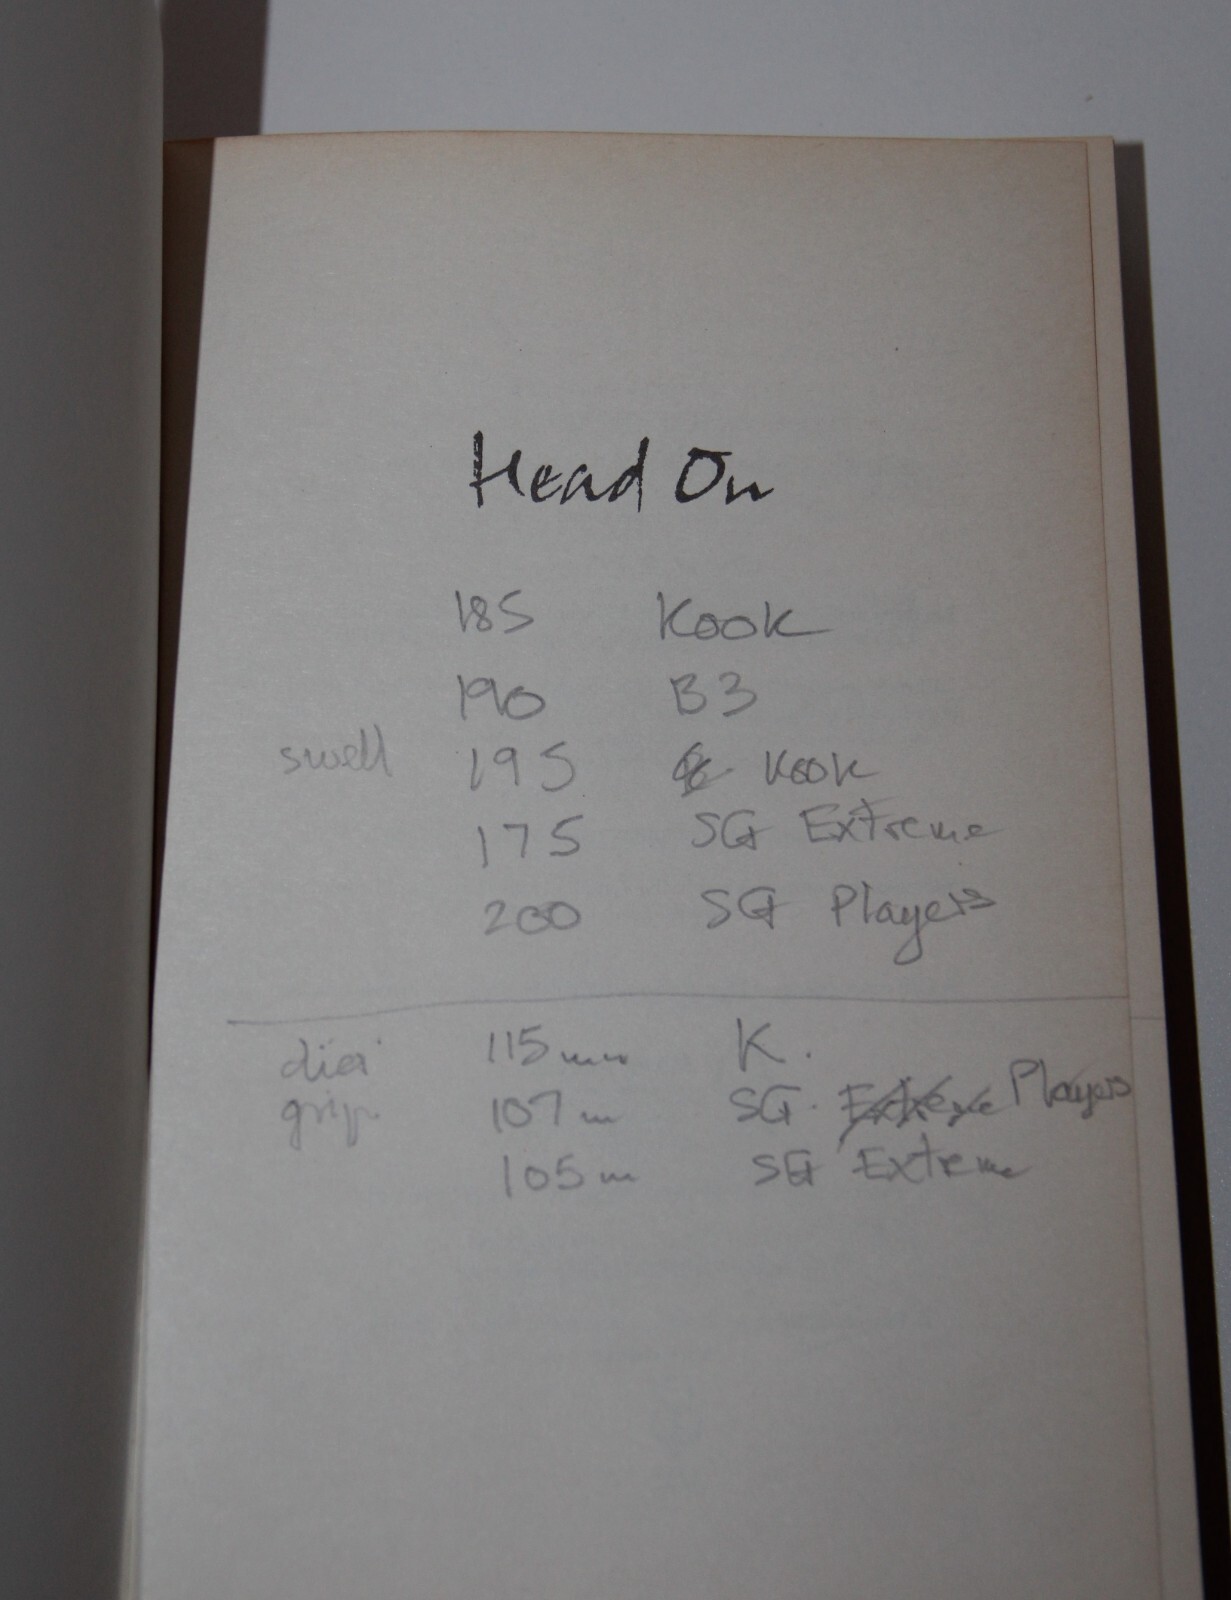 Head On
185 Kook
190 B3
swell 195 Kook
175 SG Extreme
200 SG Players
dia 115mm K.
grip 107m SG. Extreme Players
105m SG Extreme